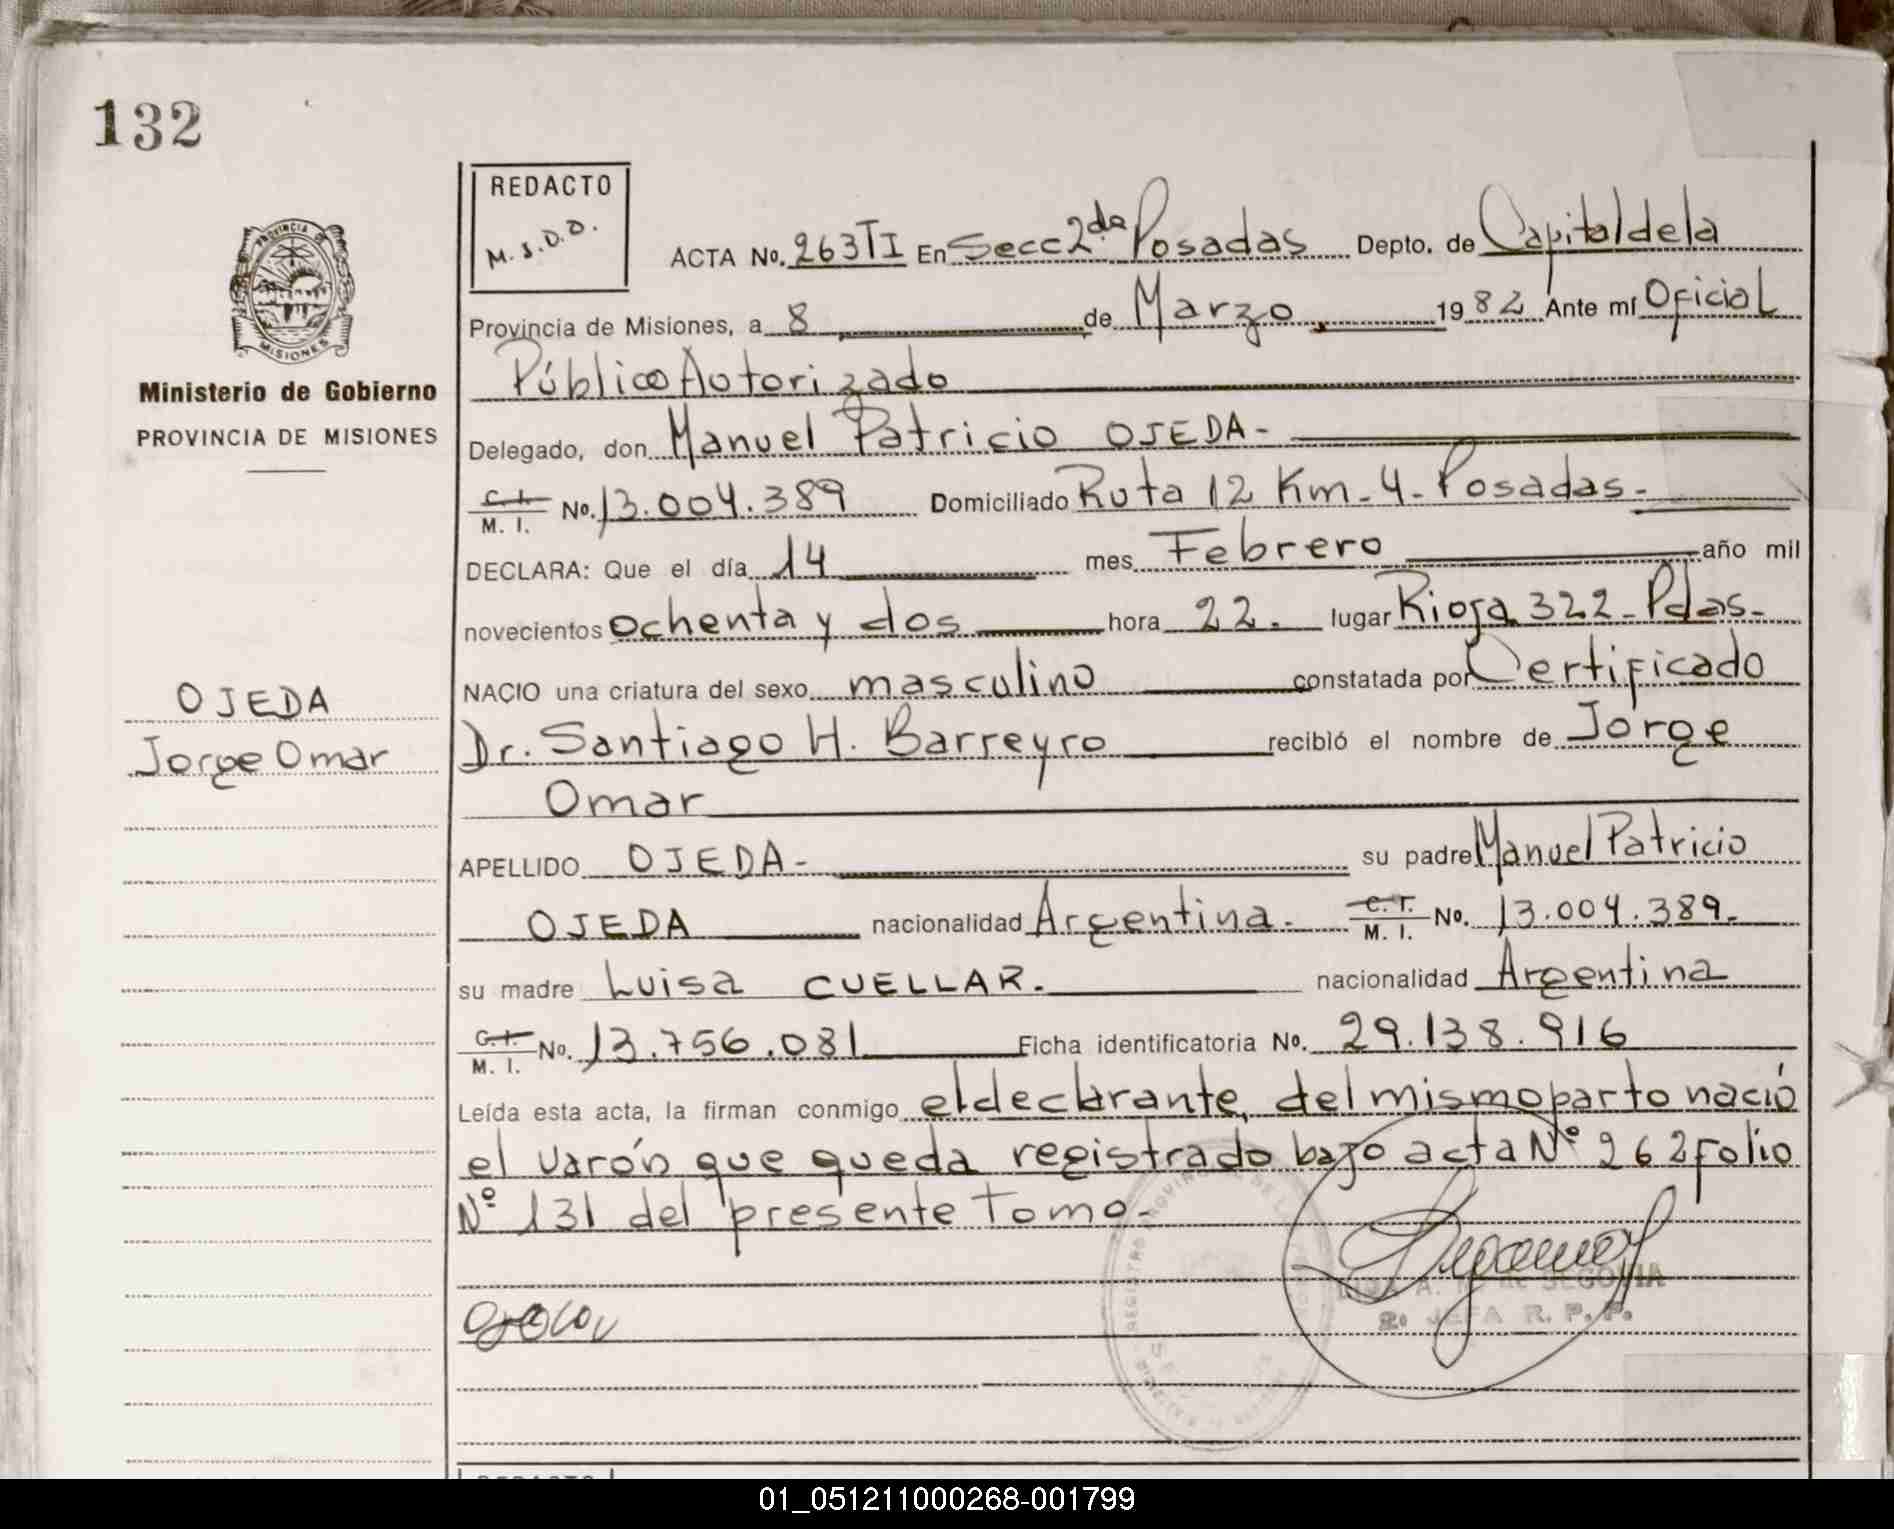 132
REDACTO
M.S.D.D.
PROVINCIA DE
MISIONES
Ministerio de Gobierno
PROVINCIA DE MISIONES
OJEDA
Jorge Omar
ACTA No. 263 TI En Secc 2da Posadas Depto. de Capital de la
Provincia de Misiones, a 8 de Marzo 1982 Ante mí Oficial
Público Autorizado
Delegado, don Manuel Patricio OJEDA-
C. I. M. I. No. 13.004.389 Domiciliado Ruta 12 Km-4-Posadas-
DECLARA: Que el día 14 mes Febrero año mil
novecientos ochenta y dos hora 22. lugar Rioja 322-Pdas-
NACIO una criatura del sexo masculino constatada por Certificado
Dr. Santiago H. Barreyro recibió el nombre de Jorge
Omar
APELLIDO OJEDA- su padre Manuel Patricio
OJEDA nacionalidad Argentina- C. I. M. I. No. 13.004.389-
su madre Luisa CUELLAR. nacionalidad Argentina
C. I. M. I. No. 13.756.081 Ficha identificatoria No. 29.138.916
Leída esta acta, la firman conmigo el declarante, del mismo parto nació
el varón que queda registrado bajo acta Nº 262 folio
Nº 131 del presente Tomo-
A. de SEGOVIA
2º JEFA R. P. P.
REDACTO
01_051211000268-001799